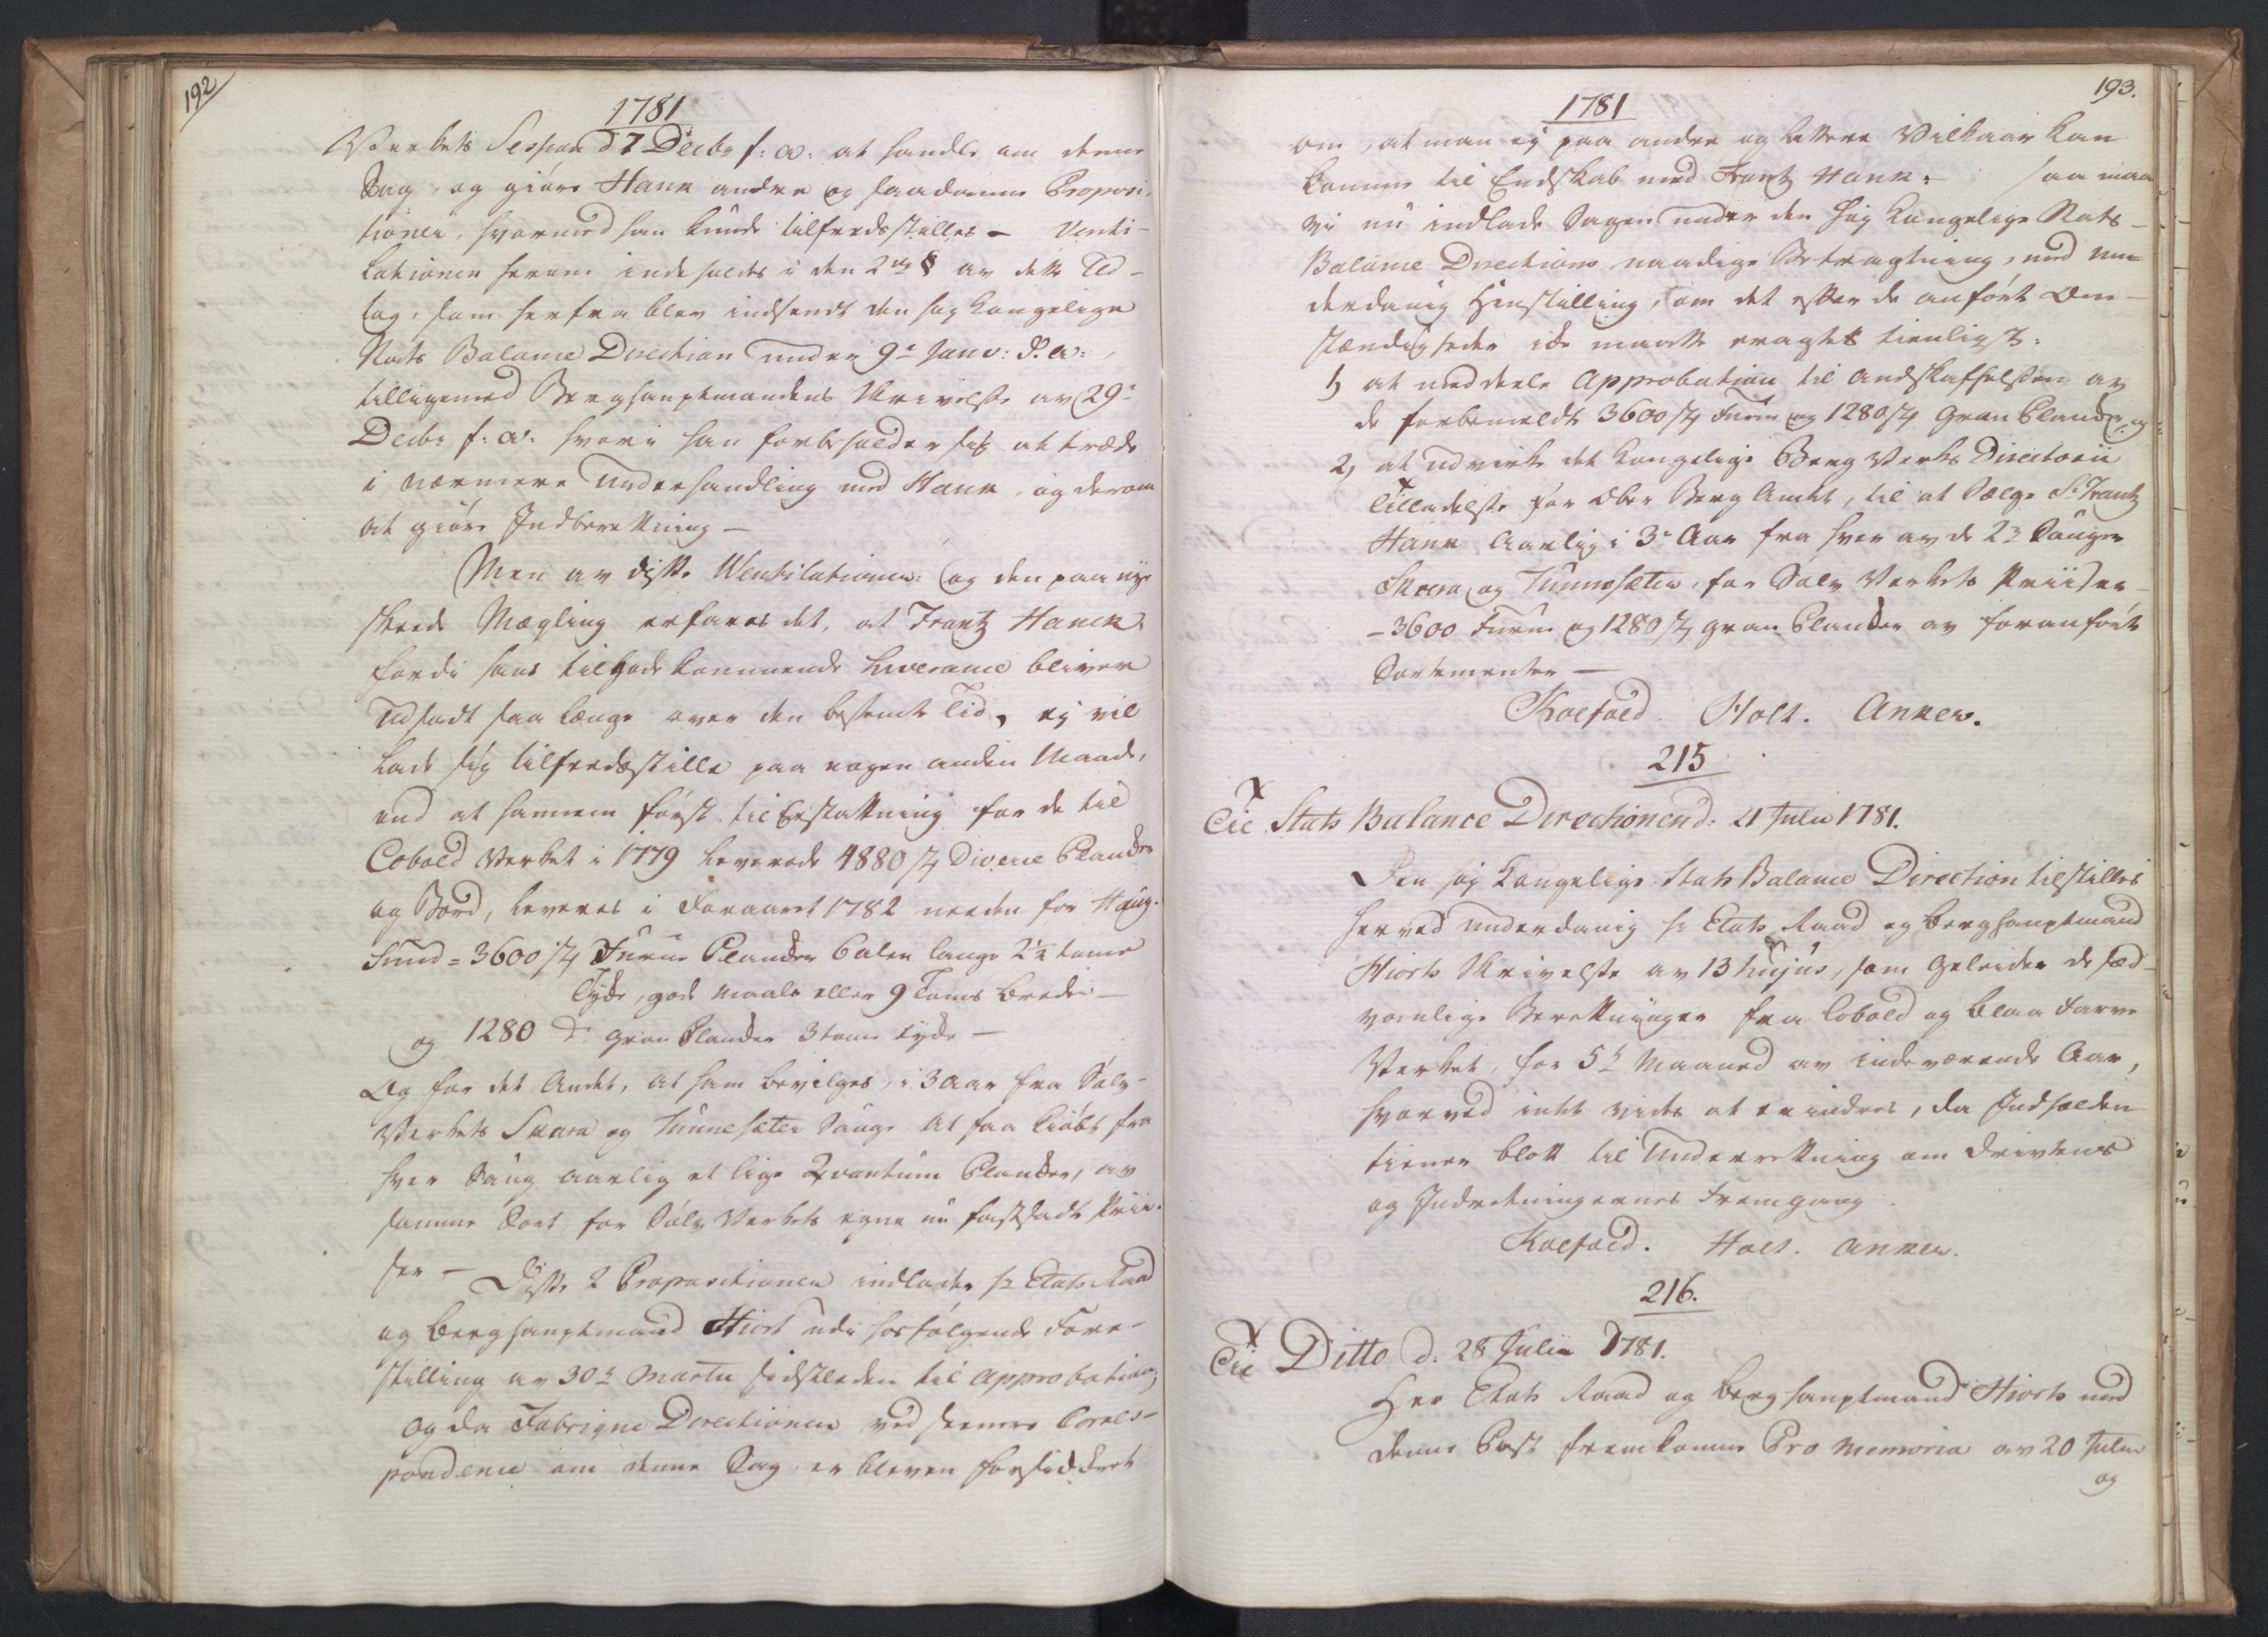 192
1781
Verkets Session d 7 Decbr f: a: at handle om denne
Sag, og giøre Hank andre og saadanne Proposi-
tioner, hvormed han kunde tilfredsstilles - Venti-
lationen herom indeholdes i den 2den § av dette Ud-
tog, som herfra blev indsendt den høy Kongelige
Stats Balance Direction under 9e Janv: d: a:,
tilligemed Berghauptmandens Skrivelse av 29e
Decbr f: a: hvori han forbeholder sig at træde
i nærmere Underhandling med Hank, og derom
at giøre Indberetning -
Men av disse Ventilationer og den paa nye
skeede Mægling erfares det, at Frantz Hanck
fordi hans tilgode kommende Liverance bliver
udsadt saa længe over den bestemte Tid, ej vil
lade sig tilfredsstille paa nogen anden Maade,
end at hannem først til Erstatning for de til
Cobold Verket i 1779 leverede 4880 st Diverse Plancker
og Bord, leveres i Foraaret 1782 neden for Haug-
Sund = 3600 st Furue Plancker 6 alen lange 2½ tomme
Tyke, gode Maals eller 9 Toms brede -
og 1280 do gran Plancker 3 tom tyke -
Og for det Andet, at ham bevilges, i 3 Aar fra Sølv-
Verkets Skara og Tunnesæter Sauge at faa kiøbt fra
hver Saug aarlig et lige Qvantum Plancker, av
samme Sort for Sølv Verkets egne nu fastsadte Prii-
ser - Disse 2 Propositioner indlader hr Etats Raad
og Berghauptmand Hiort udi hosfølgende Fore-
stilling av 30te Martii sidstleden til Approbation,
og da Fabrique Directionen ved seenere Cores-
pondence om denne Sag, er bleven forsickret
193.
1781
om, at man ej paa andre og lettere Vilkaar kan
komme til Endskab med Frantz Hank: saa maa
vi nu indlade Sagen under den høy Kongelige Stats-
Balance Directions naadige Betragtning, med un-
derdanig Henstilling, om det efter de anførte Om-
stændigheder ike maatte eragtes tienligst:
1, at meddeele Approbation til andskaffelsen av
de forbemeldte 3600 st Furue og 1280 st Gran Plancker, og
2, at udvirke det Kongelige Berg Verks Directorii
Tilladelse for Ober Berg Amtet, til at Sælge Sr Frantz
Hank Aarlig i 3e Aar fra hver av de 2de Sauger
Skara og Tunnesæter, for Sølv Verkets Priiser
- 3600 Furue og 1280 st gran Plancker av foranførte
Sortementer -
Koefoed. Holt. Anker.
215
Til Stats Balance Directionen d: 21 Julii 1781.
Den høy Kongelige Stats Balance Direction tilstilles
herved underdanig hr Etats Raad og Berghauptmand
Hiorts Skrivelse av 13 hujus, som geleider de sæd-
vanlige Beretninger fra Cobold og Blaa Farve
Verket, for 5te Maaned av indeværende Aar,
hvorved intet vides at erindres, da Indholden
tiener blott til Underretning om Drivtens
og Indretningernes Fremgang
Koefoed. Holt. Anker.
216.
Til Ditto d: 28 Julii 1781.
Her Etats Raad og Berghauptmand Hiorts med
denne Post fremkomne Pro Memoria av 20 Julii
og